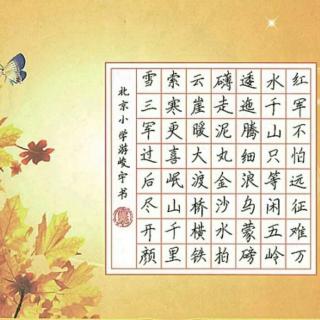 红军不怕远征难万
水千山只等闲五岭
逶迤腾细浪乌蒙磅
礴走泥丸金沙水拍
云崖暖大渡桥横铁
索寒更喜岷山千里
雪三军过后尽开颜
北京小学游峻宇书